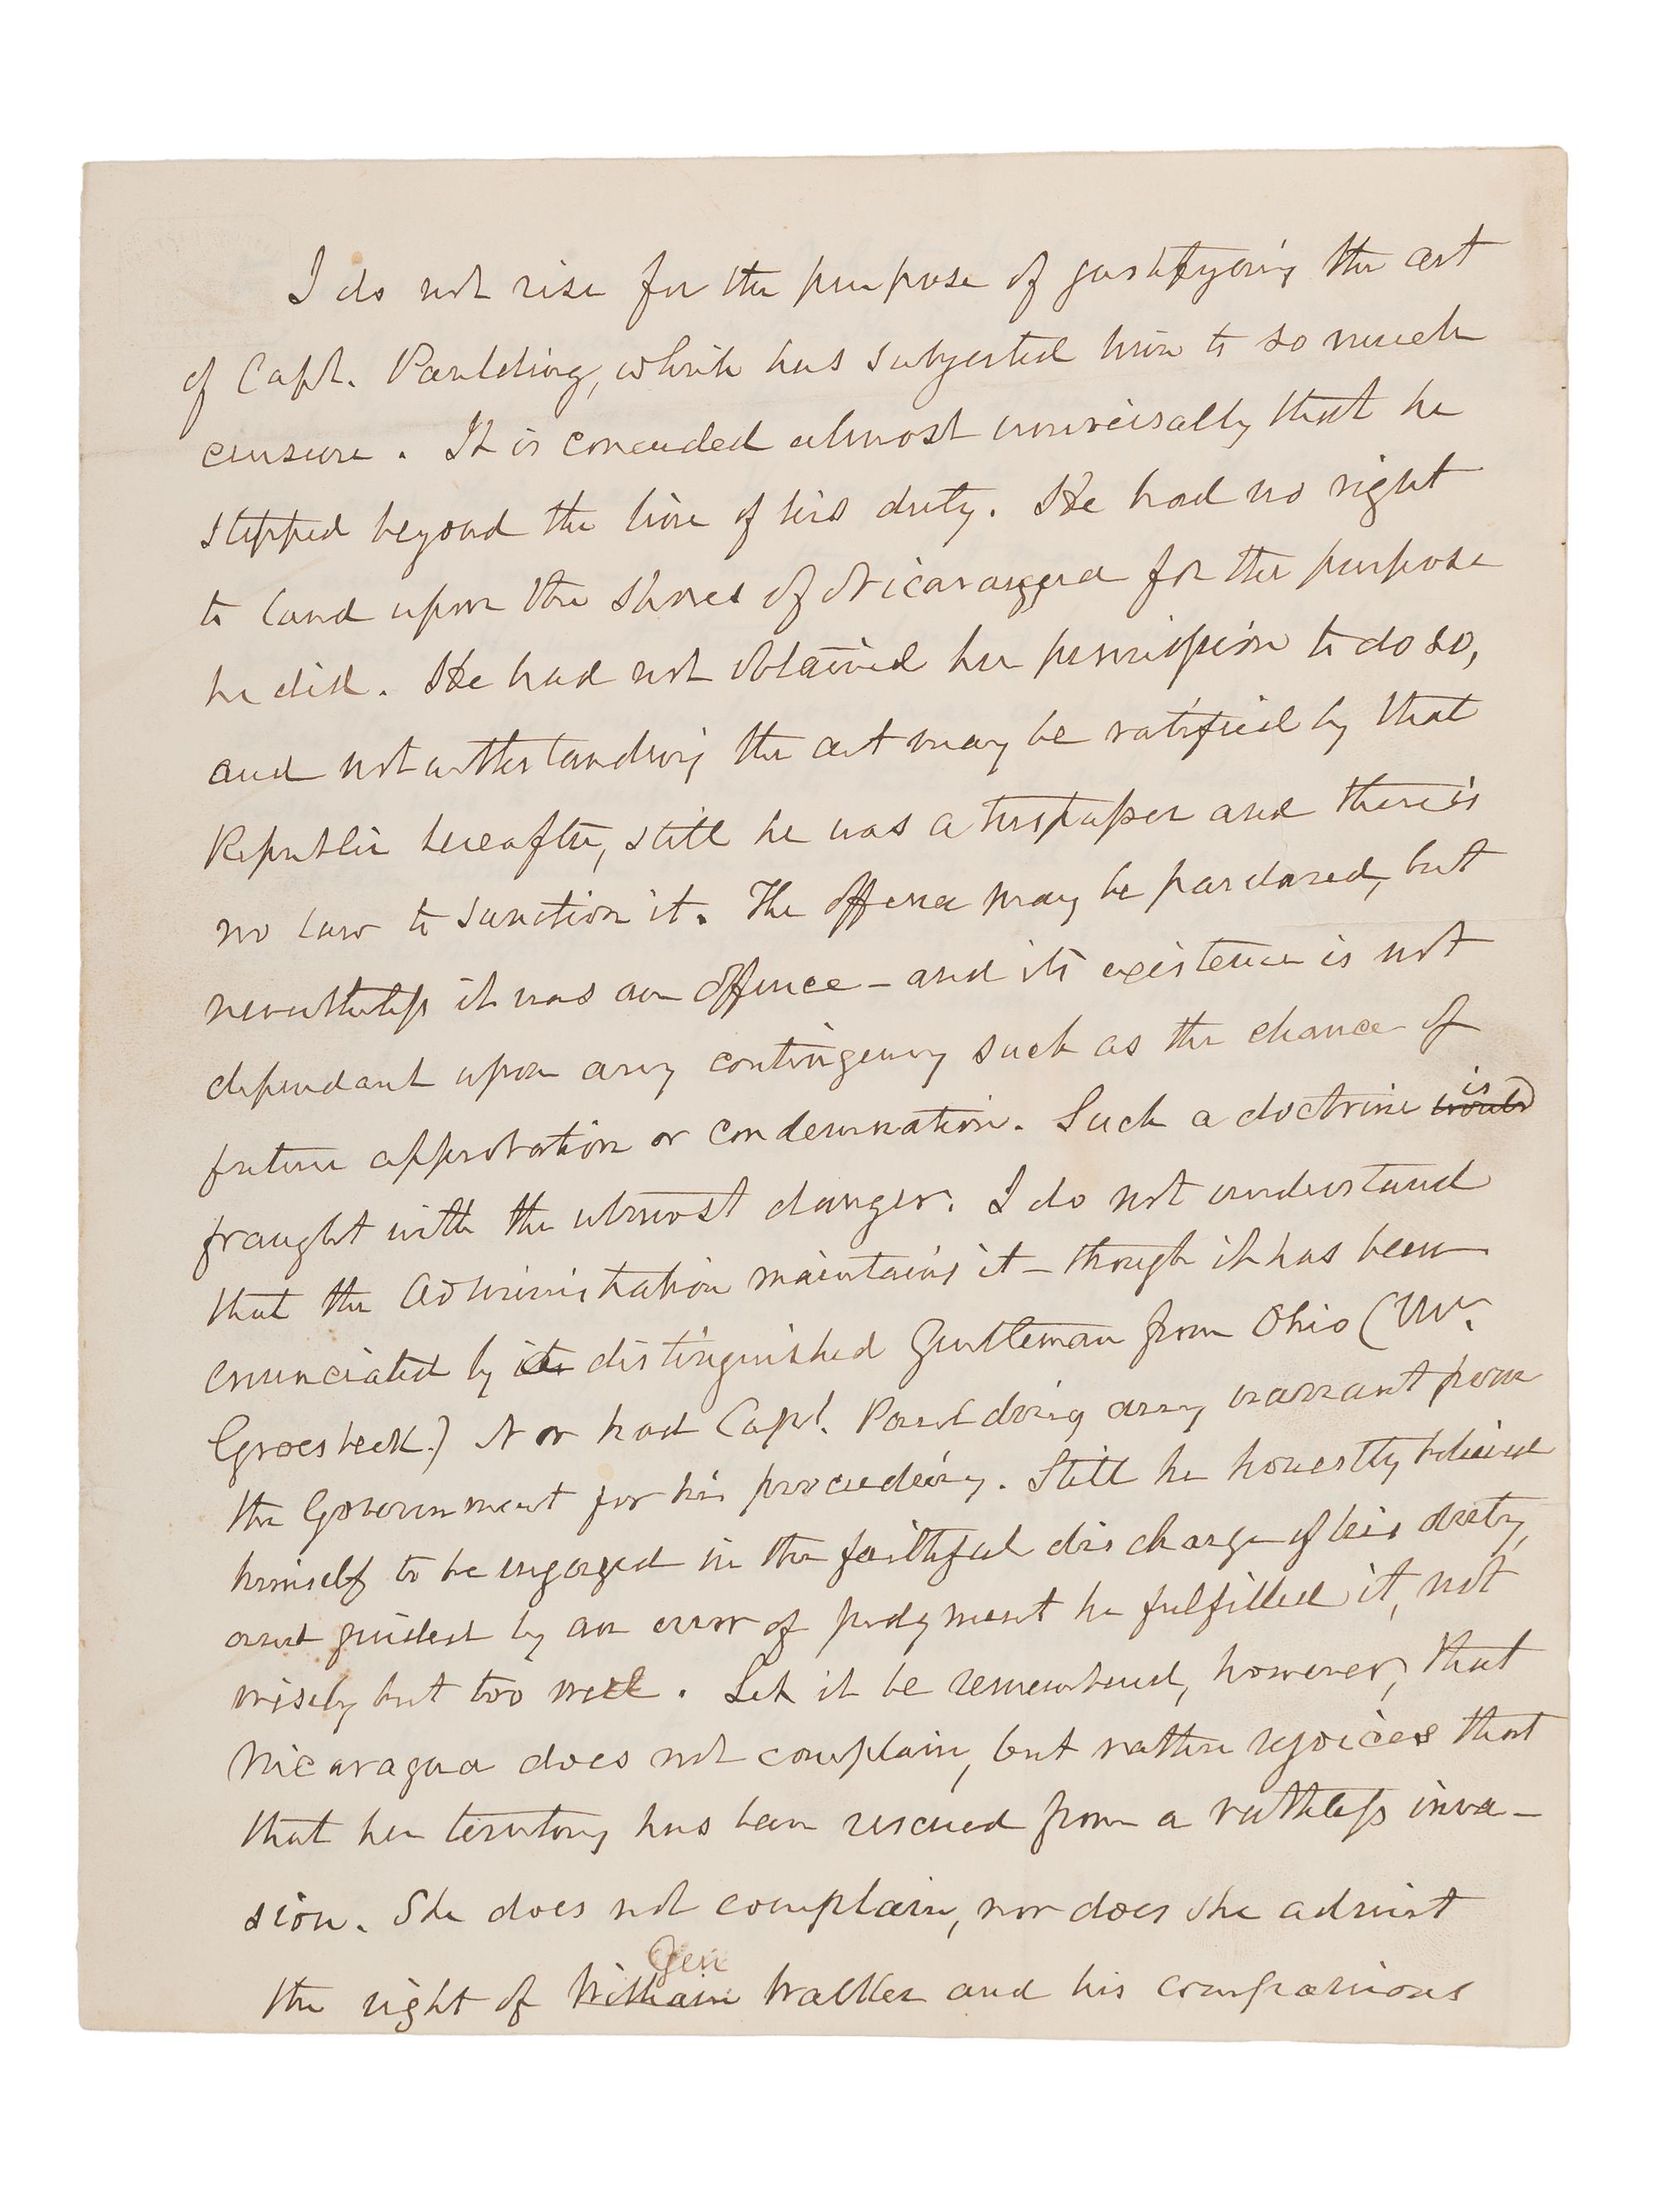 I do not rise for the purpose of justifying the act
of Capt. Paulding, which has subjected him to so much
censure. It is conceded almost universally that he
stepped beyond the line of his duty. He had no right
to land upon the shores of Nicaragua for the purpose
he did. He had not obtained her permission to do so,
and notwithstanding the act may be ratified by that
Republic hereafter, still he was a trespasser and there is
no law to sanction it. The offence may be pardoned, but
nevertheless it was an offence - and its existence is not
dependant upon any contingency such as the chance of
future approbation or condemnation. Such a doctrine is would
fraught with the utmost danger. I do not understand
that the Administration maintains it - though it has been
enunciated by its distinguished gentleman from Ohio (Mr.
Groesbeck.) Nor had Capt. Paulding any warrant from
the Government for his proceeding. Still he honestly believed
himself to be engaged in the faithful discharge of his duty,
and guided by an error of judgment he fulfilled it, not
wisely but too well. Let it be remembered, however, that
Nicaragua does not complain, but rather rejoices that
that her territory has been rescued from a ruthless inva-
sion. She does not complain, nor does she admit
Gen
the right of William Walker and his companions